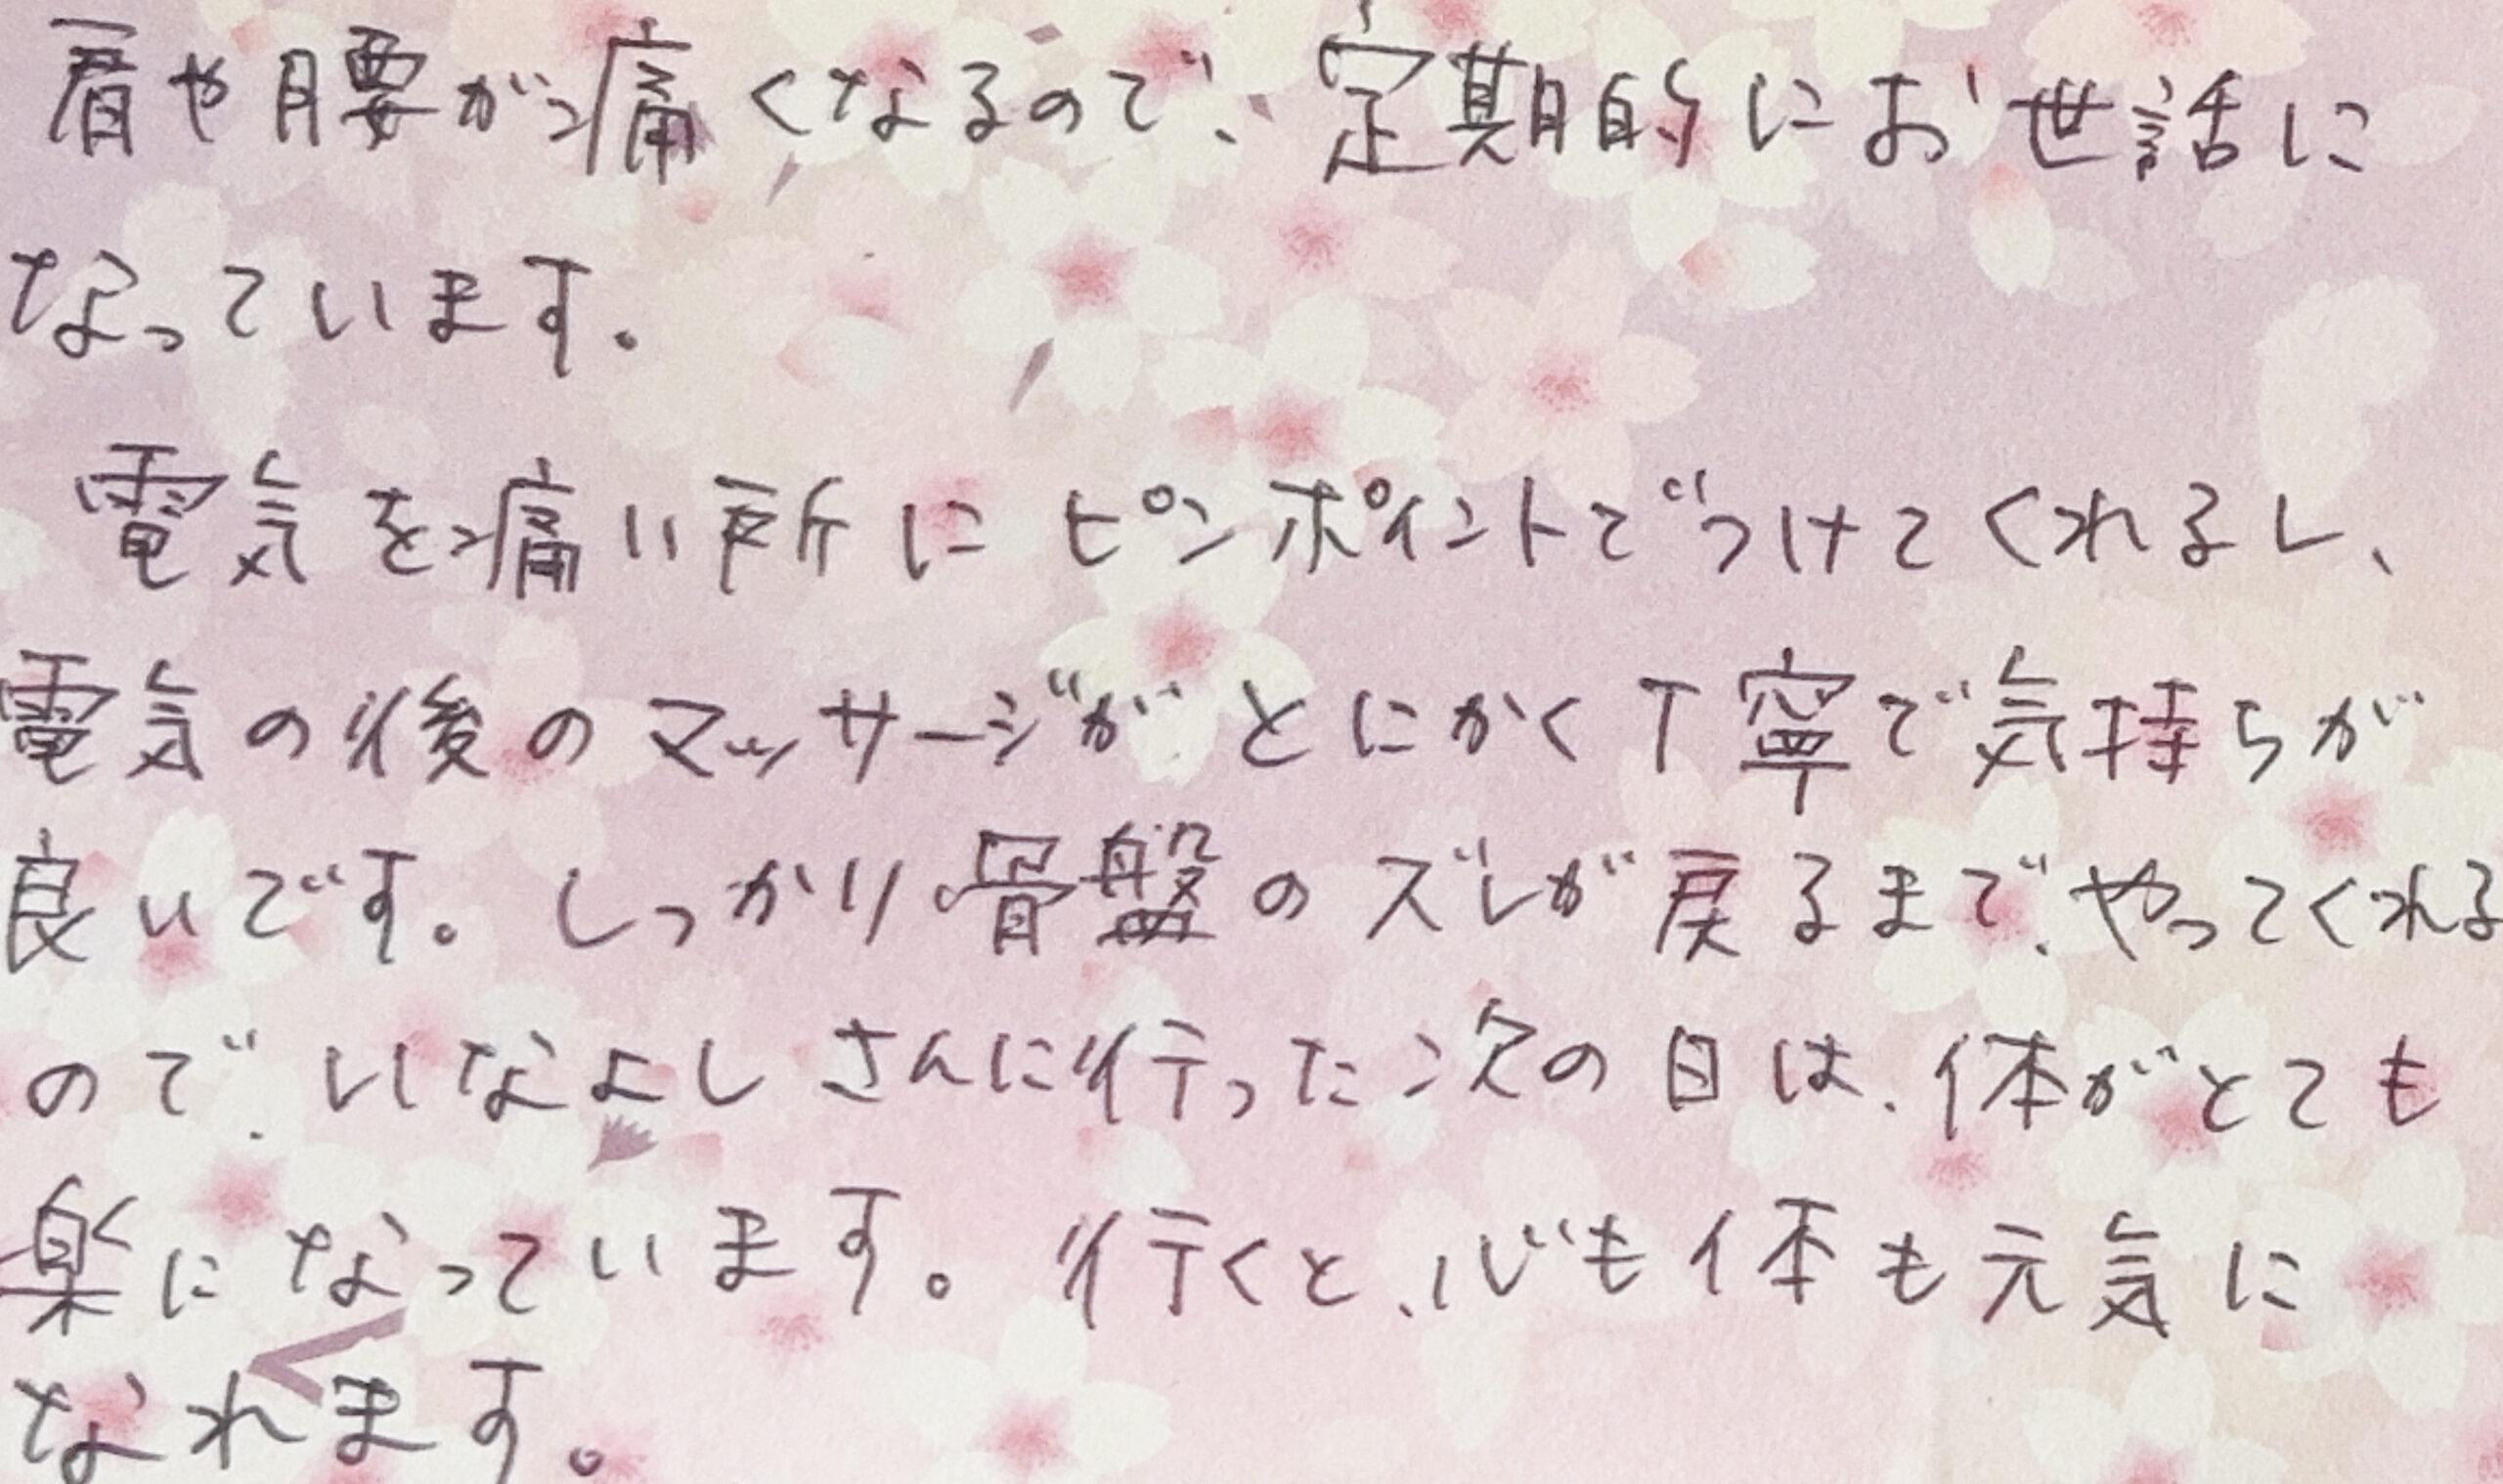 肩や腰が痛くなるので、定期的にお世話に
なっています。
電気を痛い所にピンポイントでつけてくれるし、
電気の後のマッサージがとにかく丁寧で気持ちが
良いです。しっかり骨盤のズレが戻るまで、やってくれる
ので、いなよしさんに行った次の日は、体がとても
楽になっています。行くと、心も体も元気に
なれます。